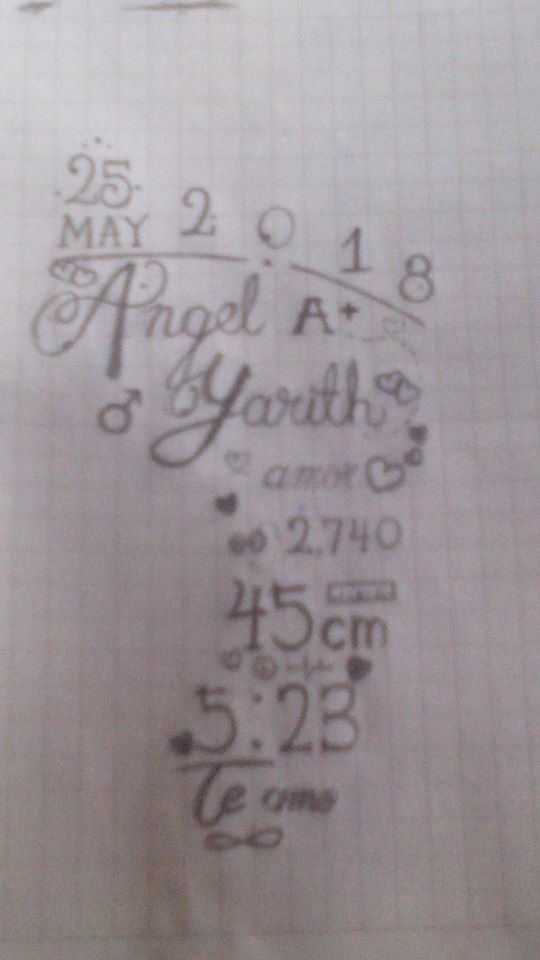 25
MAY 2 0 1 8
Angel A+
Yarith
amor
2,740
45cm
5:23
Te amo